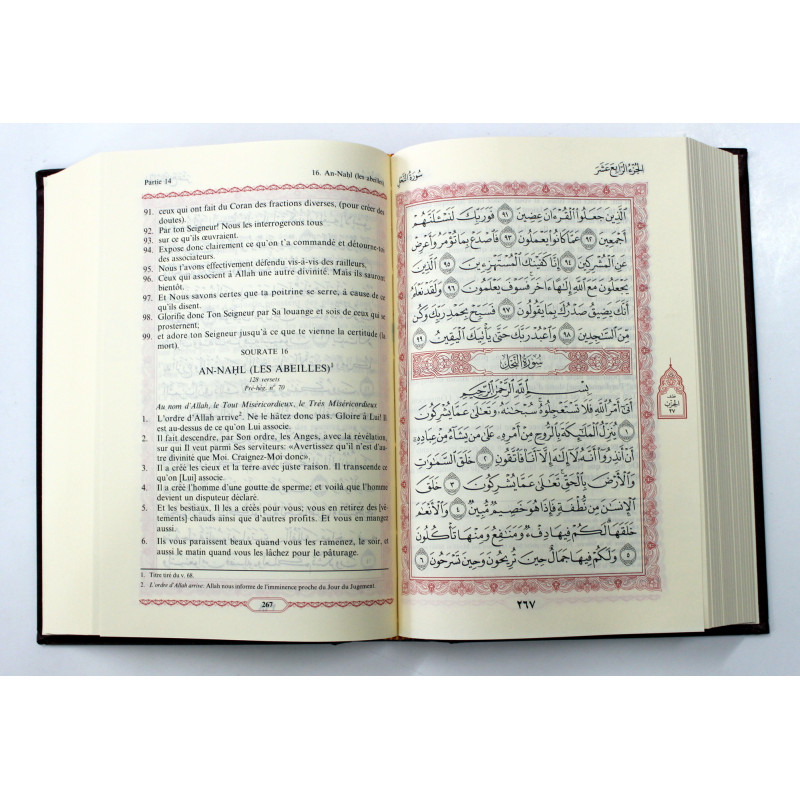 Partie 14
16. An-Nahl (les abeilles)
91. ceux qui ont fait du Coran des fractions diverses, (pour créer des
doutes).
92. Par ton Seigneur! Nous les interrogerons tous
93. sur ce qu'ils œuvraient.
94. Expose donc clairement ce qu'on t'a commandé et détourne-toi
des associateurs.
95. Nous t'avons effectivement défendu vis-à-vis des railleurs,
96. Ceux qui associent à Allah une autre divinité. Mais ils sauront
bientôt.
97. Et Nous savons certes que ta poitrine se serre, à cause de ce
qu'ils disent.
98. Glorifie donc Ton Seigneur par Sa louange et sois de ceux qui se
prosternent;
99. et adore ton Seigneur jusqu'à ce que te vienne la certitude (la
mort).
SOURATE 16
AN-NAḤL (LES ABEILLES)¹
128 versets
Pré-hég. n° 70
Au nom d'Allah, le Tout Miséricordieux, le Très Miséricordieux
1. L'ordre d'Allah arrive². Ne le hâtez donc pas. Gloire à Lui! Il
est au-dessus de ce qu'on Lui associe.
2. Il fait descendre, par Son ordre, les Anges, avec la révélation,
sur qui Il veut parmi Ses serviteurs: «Avertissez qu'il n'est d'au-
tre divinité que Moi. Craignez-Moi donc».
3. Il a créé les cieux et la terre avec juste raison. Il transcende ce
qu'on [Lui] associe.
4. Il a créé l'homme d'une goutte de sperme; et voilà que l'homme
devient un disputeur déclaré.
5. Et les bestiaux, Il les a créés pour vous; vous en retirez des [vê-
tements] chauds ainsi que d'autres profits. Et vous en mangez
aussi.
6. Ils vous paraissent beaux quand vous les ramenez, le soir, et
aussi le matin quand vous les lâchez pour le pâturage.
1. Titre tiré du v. 68.
2. L'ordre d'Allah arrive: Allah nous informe de l'imminence proche du Jour du Jugement.
267
الجزء الرابع عشر
سورة النحل
ٱلَّذِينَ جَعَلُوا۟ ٱلْقُرْءَانَ عِضِينَ ٩١ فَوَرَبِّكَ لَنَسْـَٔلَنَّهُمْ
أَجْمَعِينَ ٩٢ عَمَّا كَانُوا۟ يَعْمَلُونَ ٩٣ فَٱصْدَعْ بِمَا تُؤْمَرُ وَأَعْرِضْ
عَنِ ٱلْمُشْرِكِينَ ٩٤ إِنَّا كَفَيْنَٰكَ ٱلْمُسْتَهْزِءِينَ ٩٥ ٱلَّذِينَ
يَجْعَلُونَ مَعَ ٱللَّهِ إِلَٰهًا ءَاخَرَ فَسَوْفَ يَعْلَمُونَ ٩٦ وَلَقَدْ نَعْلَمُ
أَنَّكَ يَضِيقُ صَدْرُكَ بِمَا يَقُولُونَ ٩٧ فَسَبِّحْ بِحَمْدِ رَبِّكَ وَكُن
مِّنَ ٱلسَّٰجِدِينَ ٩٨ وَٱعْبُدْ رَبَّكَ حَتَّىٰ يَأْتِيَكَ ٱلْيَقِينُ ٩٩
سورة النحل
بِسْمِ ٱللَّهِ ٱلرَّحْمَٰنِ ٱلرَّحِيمِ
أَتَىٰٓ أَمْرُ ٱللَّهِ فَلَا تَسْتَعْجِلُوهُ سُبْحَٰنَهُۥ وَتَعَٰلَىٰ عَمَّا يُشْرِكُونَ
١ يُنَزِّلُ ٱلْمَلَٰٓئِكَةَ بِٱلرُّوحِ مِنْ أَمْرِهِۦ عَلَىٰ مَن يَشَآءُ مِنْ عِبَادِهِۦٓ
أَنْ أَنذِرُوٓا۟ أَنَّهُۥ لَآ إِلَٰهَ إِلَّآ أَنَا۠ فَٱتَّقُونِ ٢ خَلَقَ ٱلسَّمَٰوَٰتِ
وَٱلْأَرْضَ بِٱلْحَقِّ تَعَٰلَىٰ عَمَّا يُشْرِكُونَ ٣ خَلَقَ
ٱلْإِنسَٰنَ مِن نُّطْفَةٍ فَإِذَا هُوَ خَصِيمٌ مُّبِينٌ ٤ وَٱلْأَنْعَٰمَ
خَلَقَهَا لَكُمْ فِيهَا دِفْءٌ وَمَنَٰفِعُ وَمِنْهَا تَأْكُلُونَ
٥ وَلَكُمْ فِيهَا جَمَالٌ حِينَ تُرِيحُونَ وَحِينَ تَسْرَحُونَ ٦
الحزب
٢٧
٢٦٧